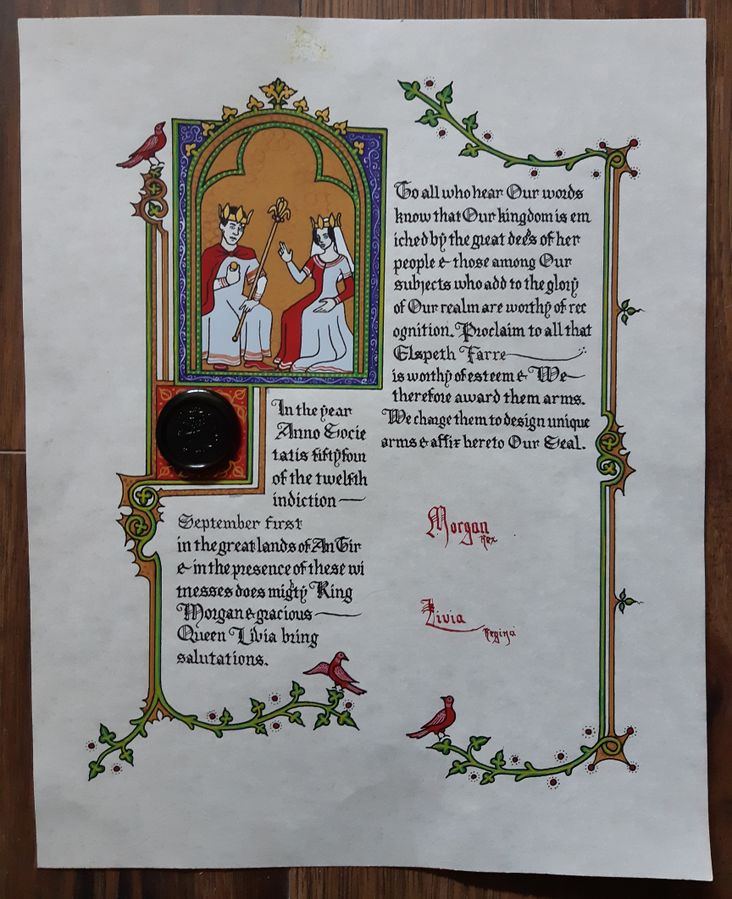 In the year
Anno Socie
tatis fiftyfour
of the twelfth
indiction
September first
in the great lands of AnTir
& in the presence of these wi
tnesses does mighty King
Morgan & gracious
Queen Livia bring
salutations.
To all who hear Our words
know that Our kingdom is em
iched by the great dee's of her
people & those among Our
subjects who add to the glory
of Our realm are worthy of rec
ognition. Proclaim to all that
Elspeth Farre
is worthy of esteem & We
therefore award them arms.
We charge them to design unique
arms & affix hereto Our Seal.
Morgan
Rex
Livia
Regina